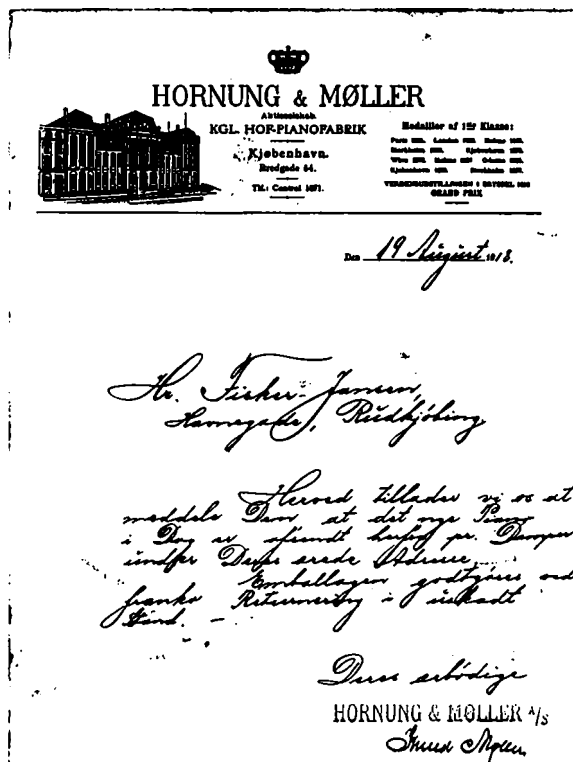 HORNUNG & MØLLER
Aktieselskab
KGL. HOF-PIANOFABRIK
Kjøbenhavn.
Bredgade 54.
Tlf.: Central 1071.
Medailler af 1ste Klasse:
VERDENSUDSTILLINGEN I BRYSSEL 1910
GRAND PRIX
Den 19 August 1918.
Hr. Fisker-Jansen,
Havnegade, Rudkjøbing
Herved tillader vi os at
meddele Dem, at det nye Piano
i Dag er afsendt herfra pr. Damper
under Deres ærede Adresse.
Emballagen godtgøres ved
franko Returnering i uskadt
Stand. -
Deres ærbødige
HORNUNG & MØLLER A/S
Knud Møller